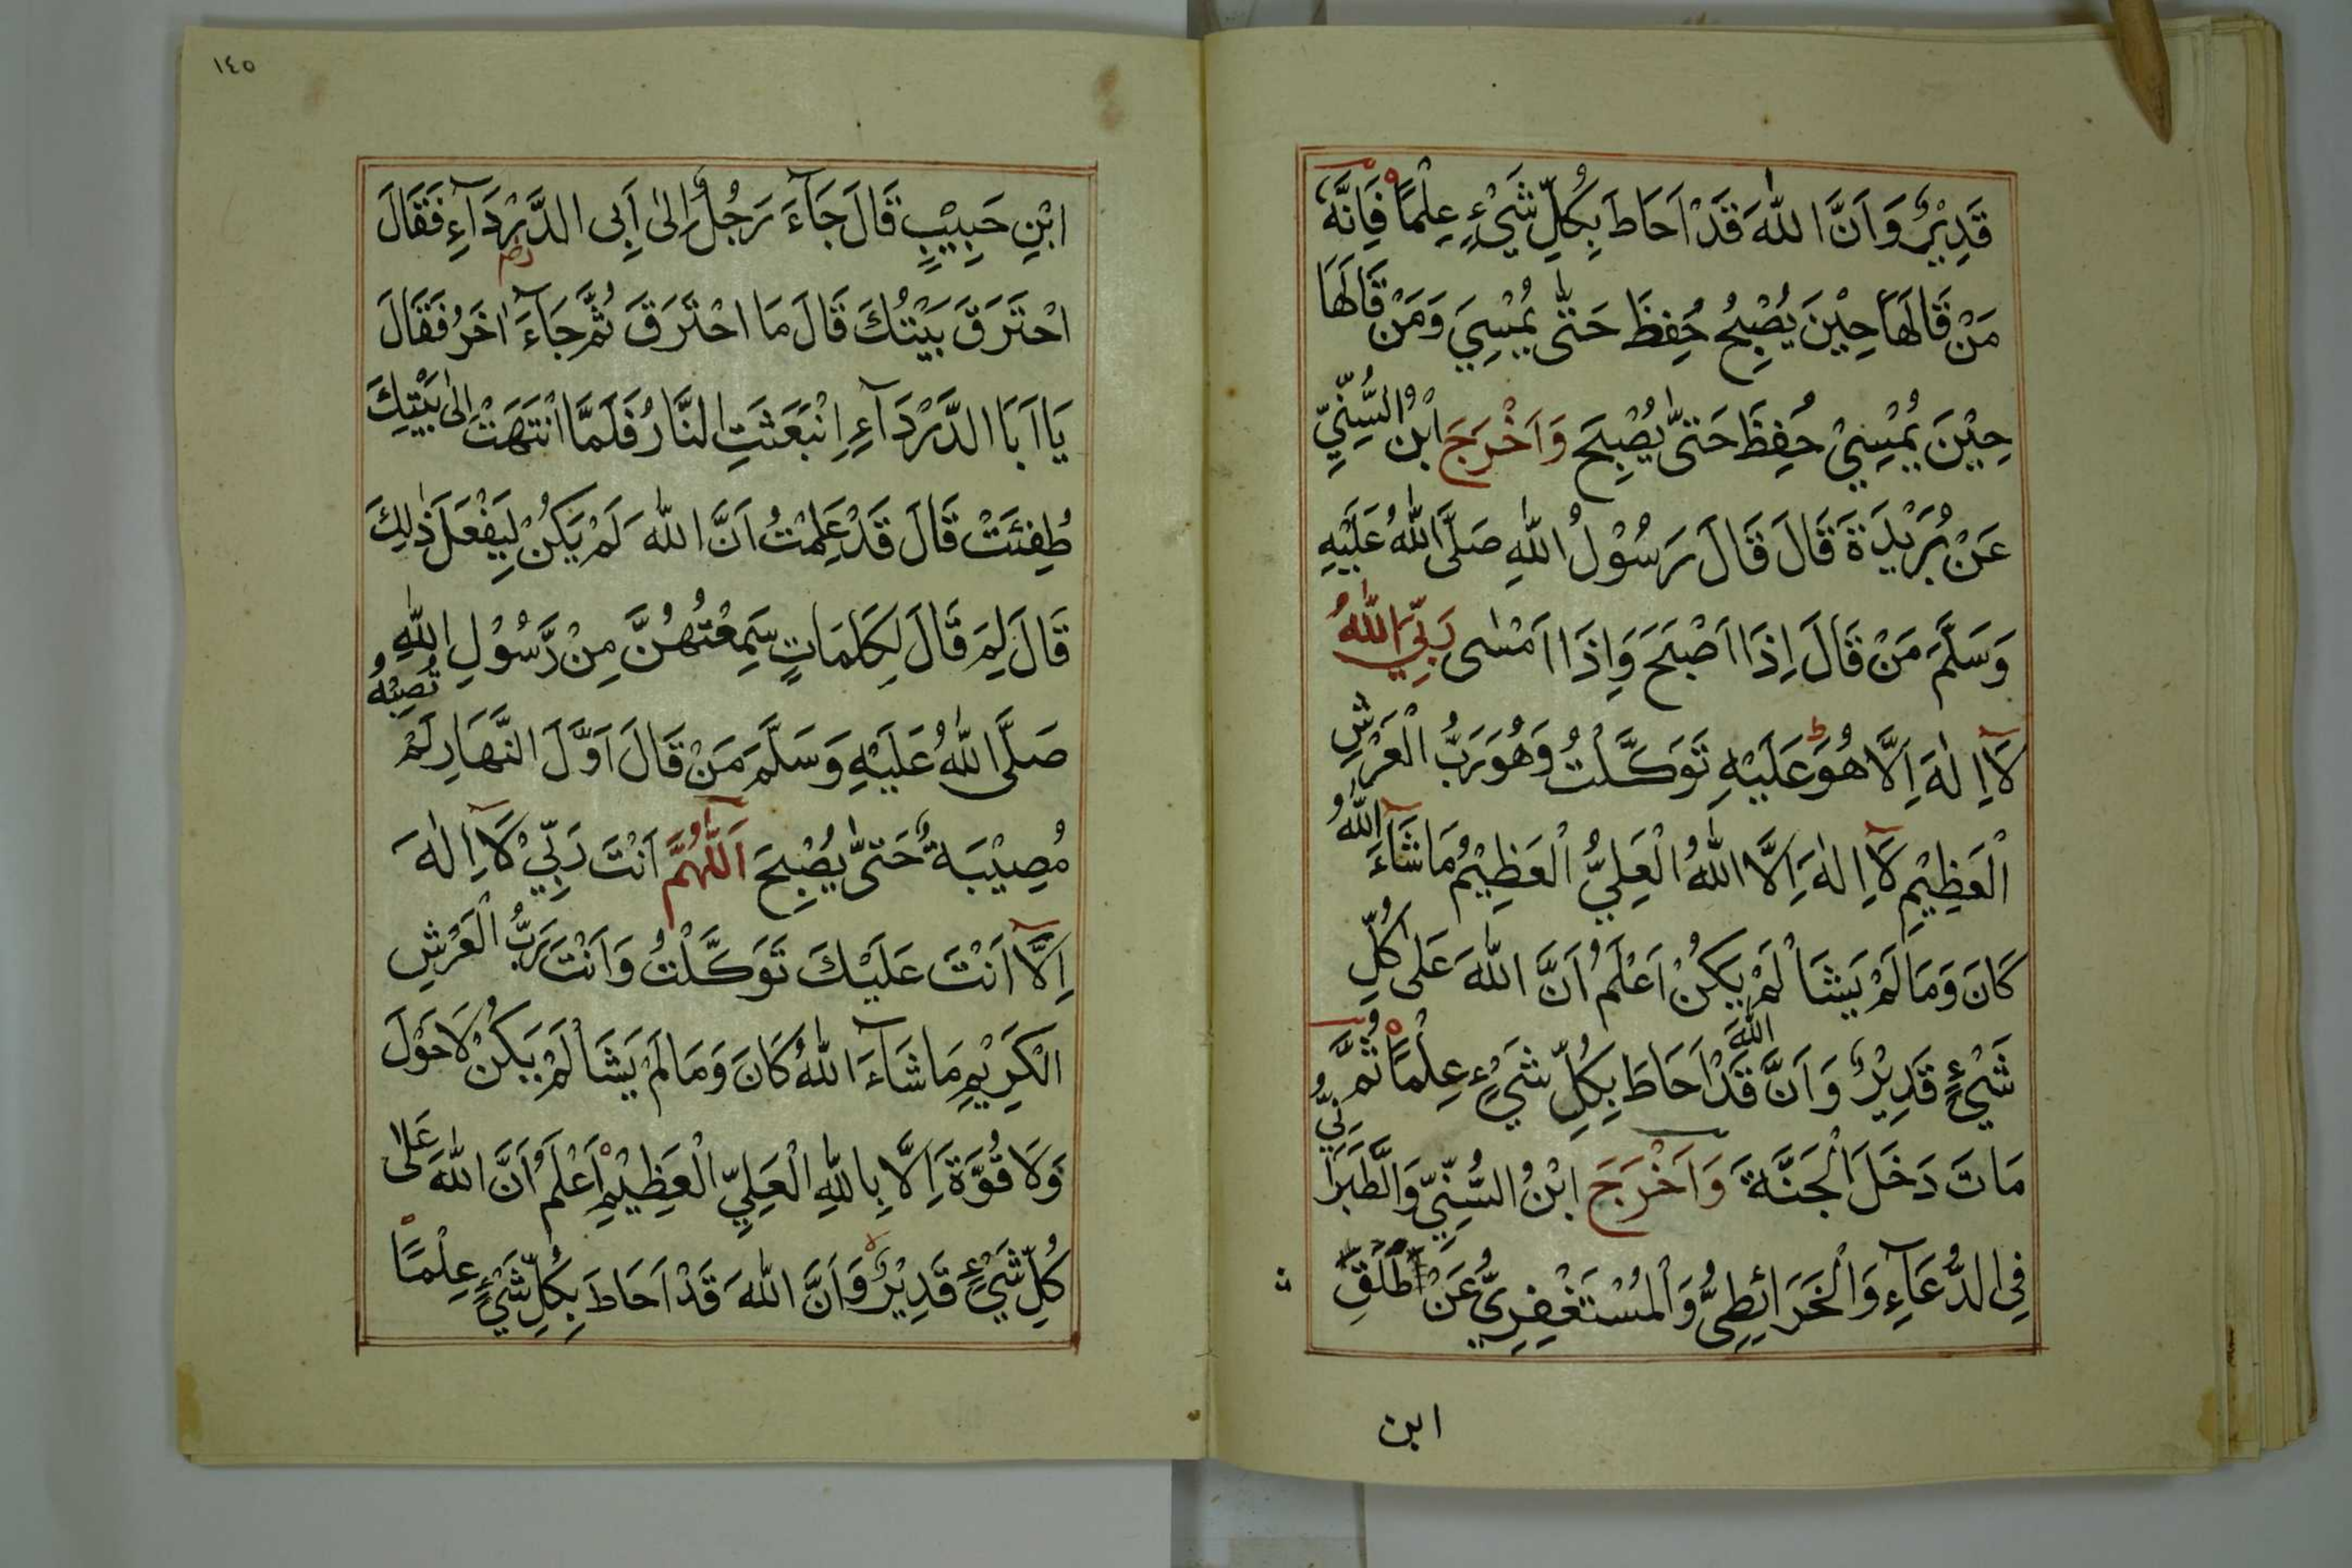 قَدِيْرٌ وَاَنَّ اللّٰهَ قَدْ اَحَاطَ بِكُلِّ شَيْءٍ عِلْمًا فَاِنَّهٗ
مَنْ قَالَهَا حِيْنَ يُصْبِحُ حُفِظَ حَتّٰى يُمْسِيَ وَمَنْ قَالَهَا
حِيْنَ يُمْسِيْ حُفِظَ حَتّٰى يُصْبِحَ وَاَخْرَجَ ابْنُ السُّنِّيِّ
عَنْ بُرَيْدَةَ قَالَ قَالَ رَسُوْلُ اللّٰهِ صَلَّى اللّٰهُ عَلَيْهِ
وَسَلَّمَ مَنْ قَالَ اِذَا اَصْبَحَ وَاِذَا اَمْسٰى رَبِّيَ اللّٰهُ
لَآ اِلٰهَ اِلَّا هُوَ عَلَيْهِ تَوَكَّلْتُ وَهُوَ رَبُّ الْعَرْشِ
الْعَظِيْمِ لَآ اِلٰهَ اِلَّا اللّٰهُ الْعَلِيُّ الْعَظِيْمُ مَا شَآءَ اللّٰهُ
كَانَ وَمَا لَمْ يَشَاْ لَمْ يَكُنْ اَعْلَمُ اَنَّ اللّٰهَ عَلٰى كُلِّ
شَيْءٍ قَدِيْرٌ وَاَنَّ اللّٰهَ قَدْ اَحَاطَ بِكُلِّ شَيْءٍ عِلْمًا ثُمَّ
مَاتَ دَخَلَ الْجَنَّةَ وَاَخْرَجَ ابْنُ السُّنِّيِّ وَالطَّبَرَانِيُّ
فِي الدُّعَآءِ وَالْخَرَائِطِيُّ وَالْمُسْتَغْفِرِيُّ عَنْ طَلَقِ
ابن
١٤٥
ابْنِ حَبِيْبٍ قَالَ جَآءَ رَجُلٌ اِلٰى اَبِى الدَّرْدَآءِ فَقَالَ
احْتَرَقَ بَيْتُكَ قَالَ مَا احْتَرَقَ ثُمَّ جَآءَ اٰخَرُ فَقَالَ
يَا اَبَا الدَّرْدَآءِ اِنْبَعَثَتِ النَّارُ فَلَمَّا انْتَهَتْ اِلٰى بَيْتِكَ
طُفِئَتْ قَالَ قَدْ عَلِمْتُ اَنَّ اللّٰهَ لَمْ يَكُنْ لِيَفْعَلَ ذٰلِكَ
قَالَ لِمَ قَالَ لِكَلِمَاتٍ سَمِعْتُهُنَّ مِنْ رَّسُوْلِ اللّٰهِ
صَلَّى اللّٰهُ عَلَيْهِ وَسَلَّمَ مَنْ قَالَ اَوَّلَ النَّهَارِ لَمْ تُصِبْهُ
مُصِيْبَةٌ حَتّٰى يُصْبِحَ اَللّٰهُمَّ اَنْتَ رَبِّيْ لَآ اِلٰهَ
اِلَّا اَنْتَ عَلَيْكَ تَوَكَّلْتُ وَاَنْتَ رَبُّ الْعَرْشِ
الْكَرِيْمِ مَا شَآءَ اللّٰهُ كَانَ وَمَا لَمْ يَشَاْ لَمْ يَكُنْ لَا حَوْلَ
وَلَا قُوَّةَ اِلَّا بِاللّٰهِ الْعَلِيِّ الْعَظِيْمِ اَعْلَمُ اَنَّ اللّٰهَ عَلٰى
كُلِّ شَيْءٍ قَدِيْرٌ وَاَنَّ اللّٰهَ قَدْ اَحَاطَ بِكُلِّ شَيْءٍ عِلْمًا